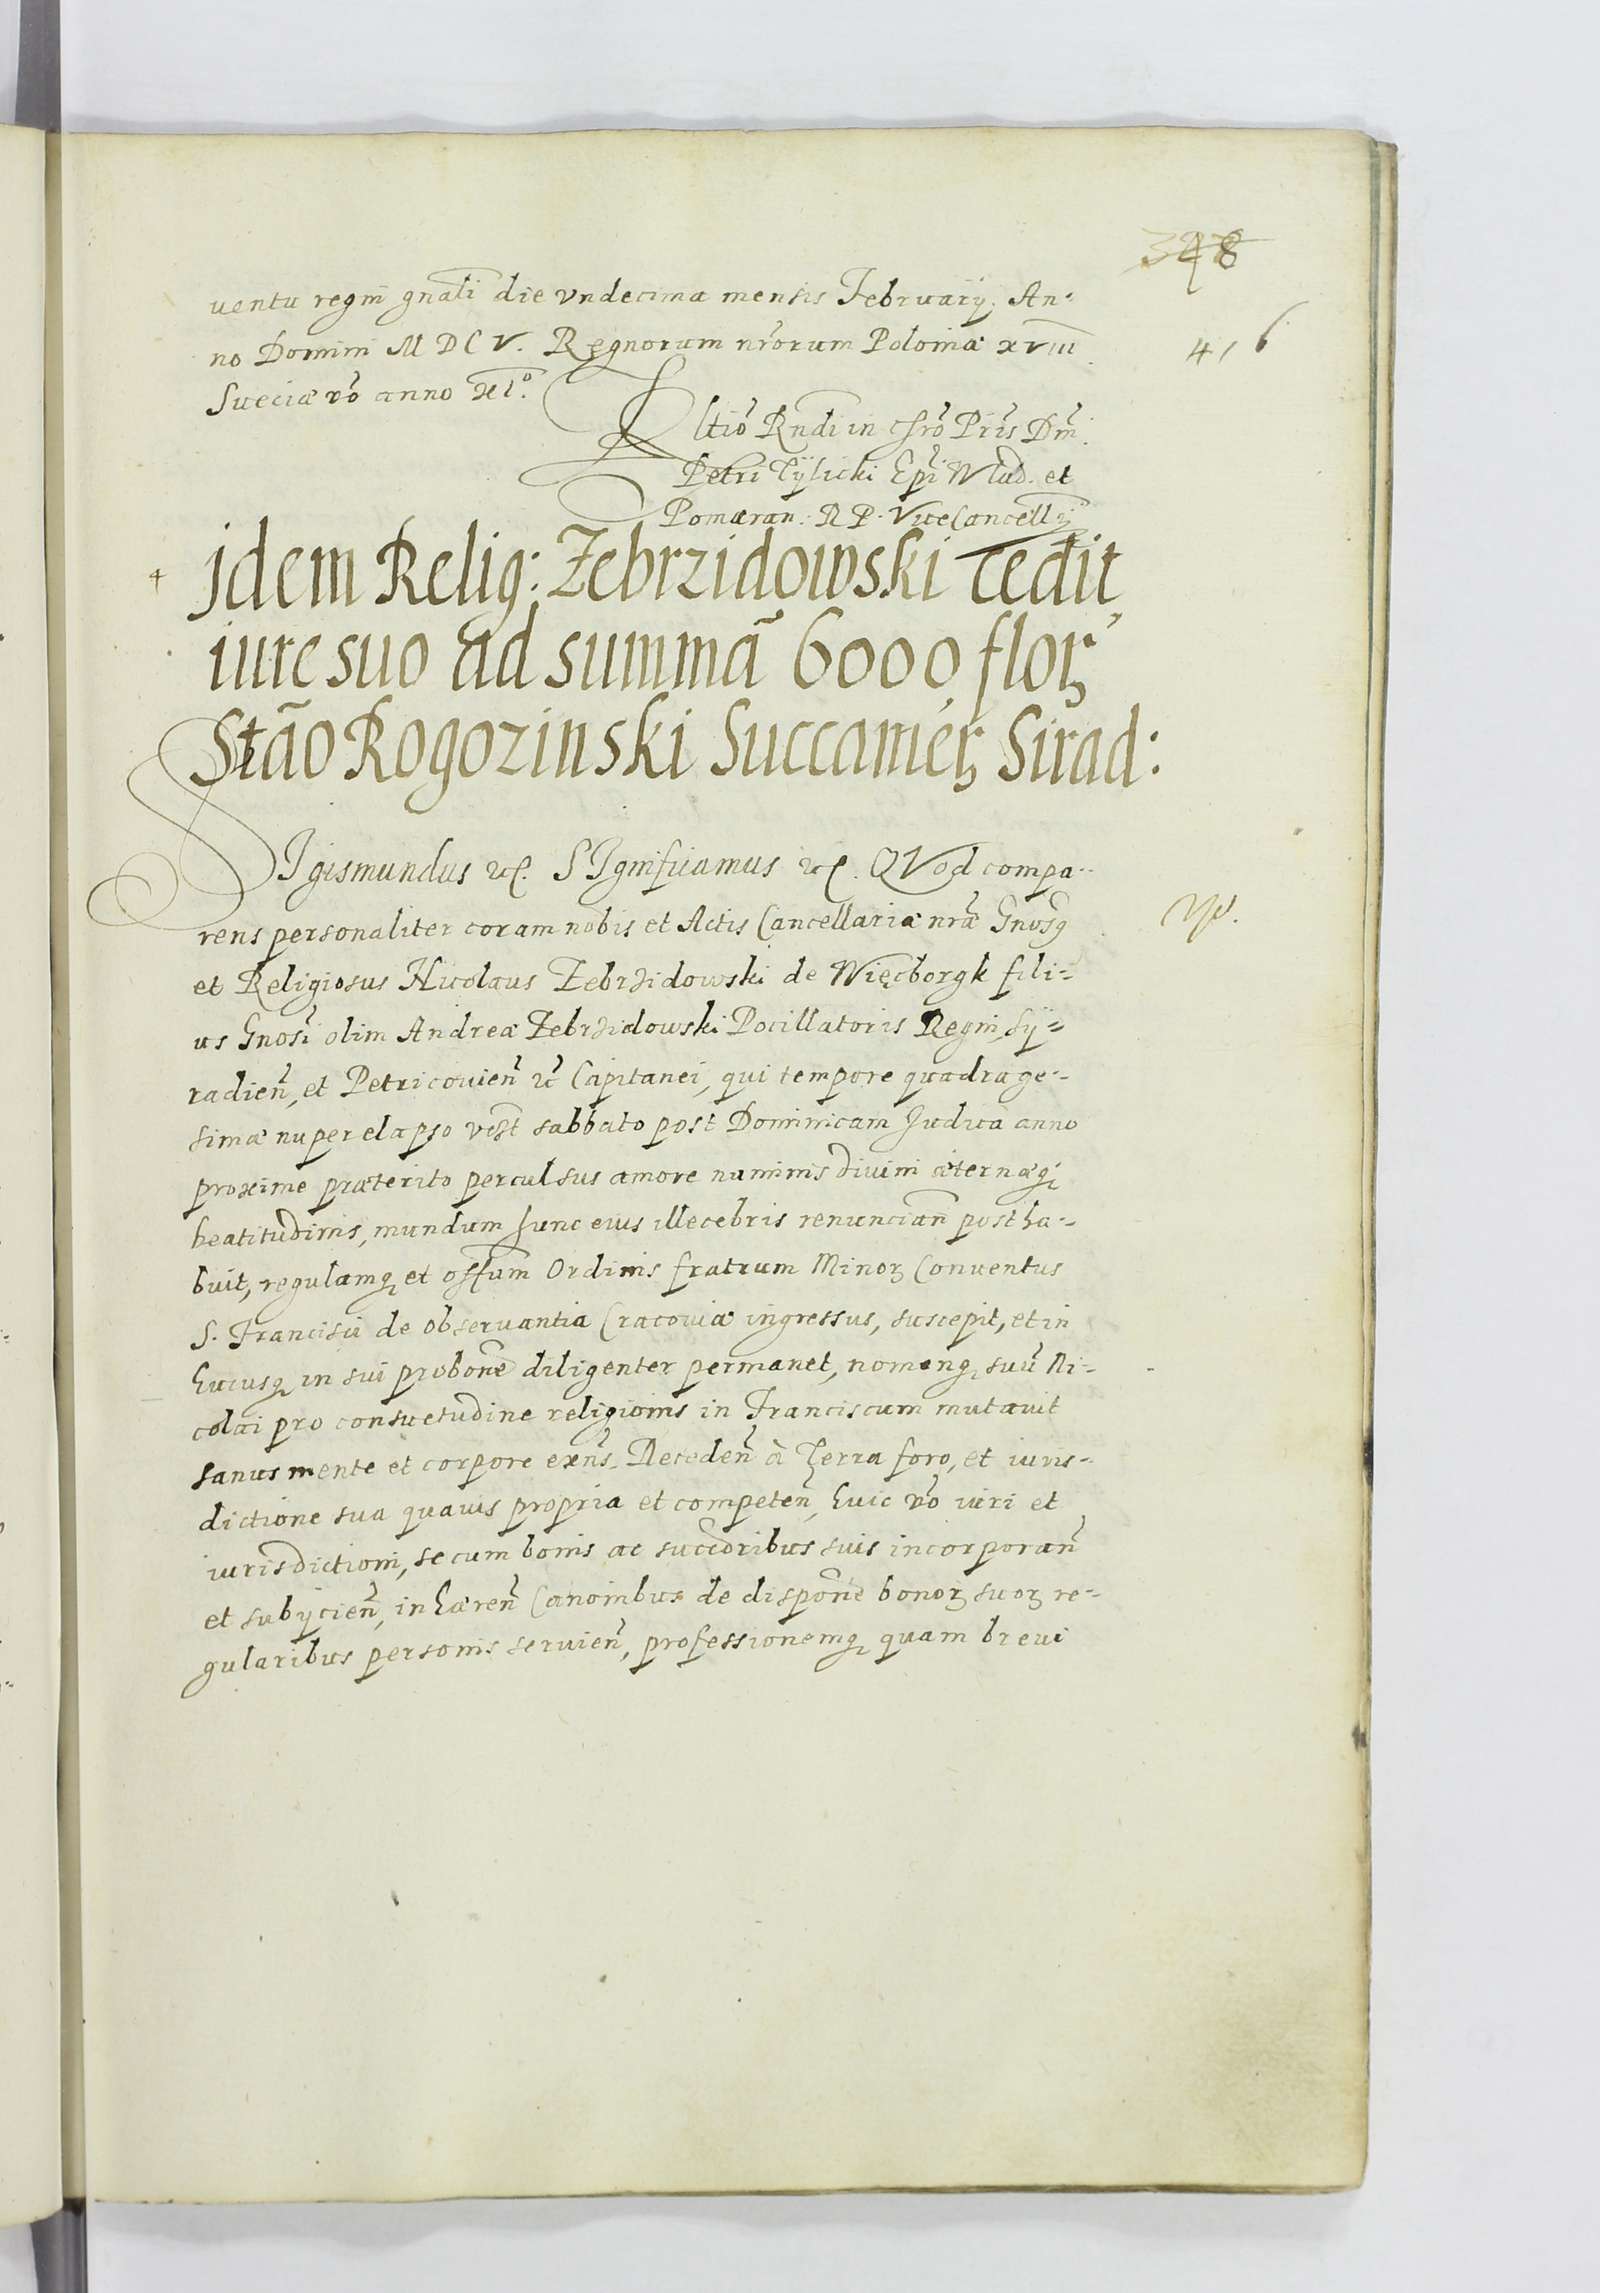 348
uentu regni gnali die vndecima mensis February. An-
no Domini MDCV. Regnorum nrorum Poloniæ xviii
416
Sueciæ vo anno xio.
Rltio Rndi in chro Pris Dni
Petri Tylicki Epi Wlad. et
Pomæran: RP. ViceCancellÿ
Jdem Relig: Zebrzidowski cedit
iure suo ad summã 6000 florꝝ
Stão Rogozinski Succamerꝝ Sirad:
SIgismundus etc. SIgnificamus etc. QVod compa-
rens personaliter coram nobis et Actis Cancellariæ nræ Gnosꝰ
et Religiosus Nicolaus Zebrzidowski de Więcborgk fili-
us Gnosi olim Andreæ Zebrzidowski Pocillatoris Regni, Sÿ-
radien, et Petricouien etc Capitanei, qui tempore quadrage-
simæ nuper elapso vest sabbato post Dominicam Judica anno
proxime præterito perculsus amore numinis diuini æternæq;
beatitudinis, mundum hunc eius illecebris renuncian postha-
buit, regulamq; et offum Ordinis fratrum Minorꝝ Conuentus
S. Francisci de obseruantia Cracouiæ ingressus, suscepit, et in
huiusq; in sui probone diligenter permanet, nomenq; suũ Ni-
colai pro consuetudine religionis in Franciscum mutauit
sanus mente et corpore exns. Receden à Terra foro, et iuris-
dictione sua quauis propria et competen, huic vo iuri et
iurisdictioni, se cum bonis ac succoribus suis incorporan
et subÿcien, inhæren Canonibus de dispone bonorꝝ suorꝝ re-
gularibus personis seruien, professionemq; quam breui